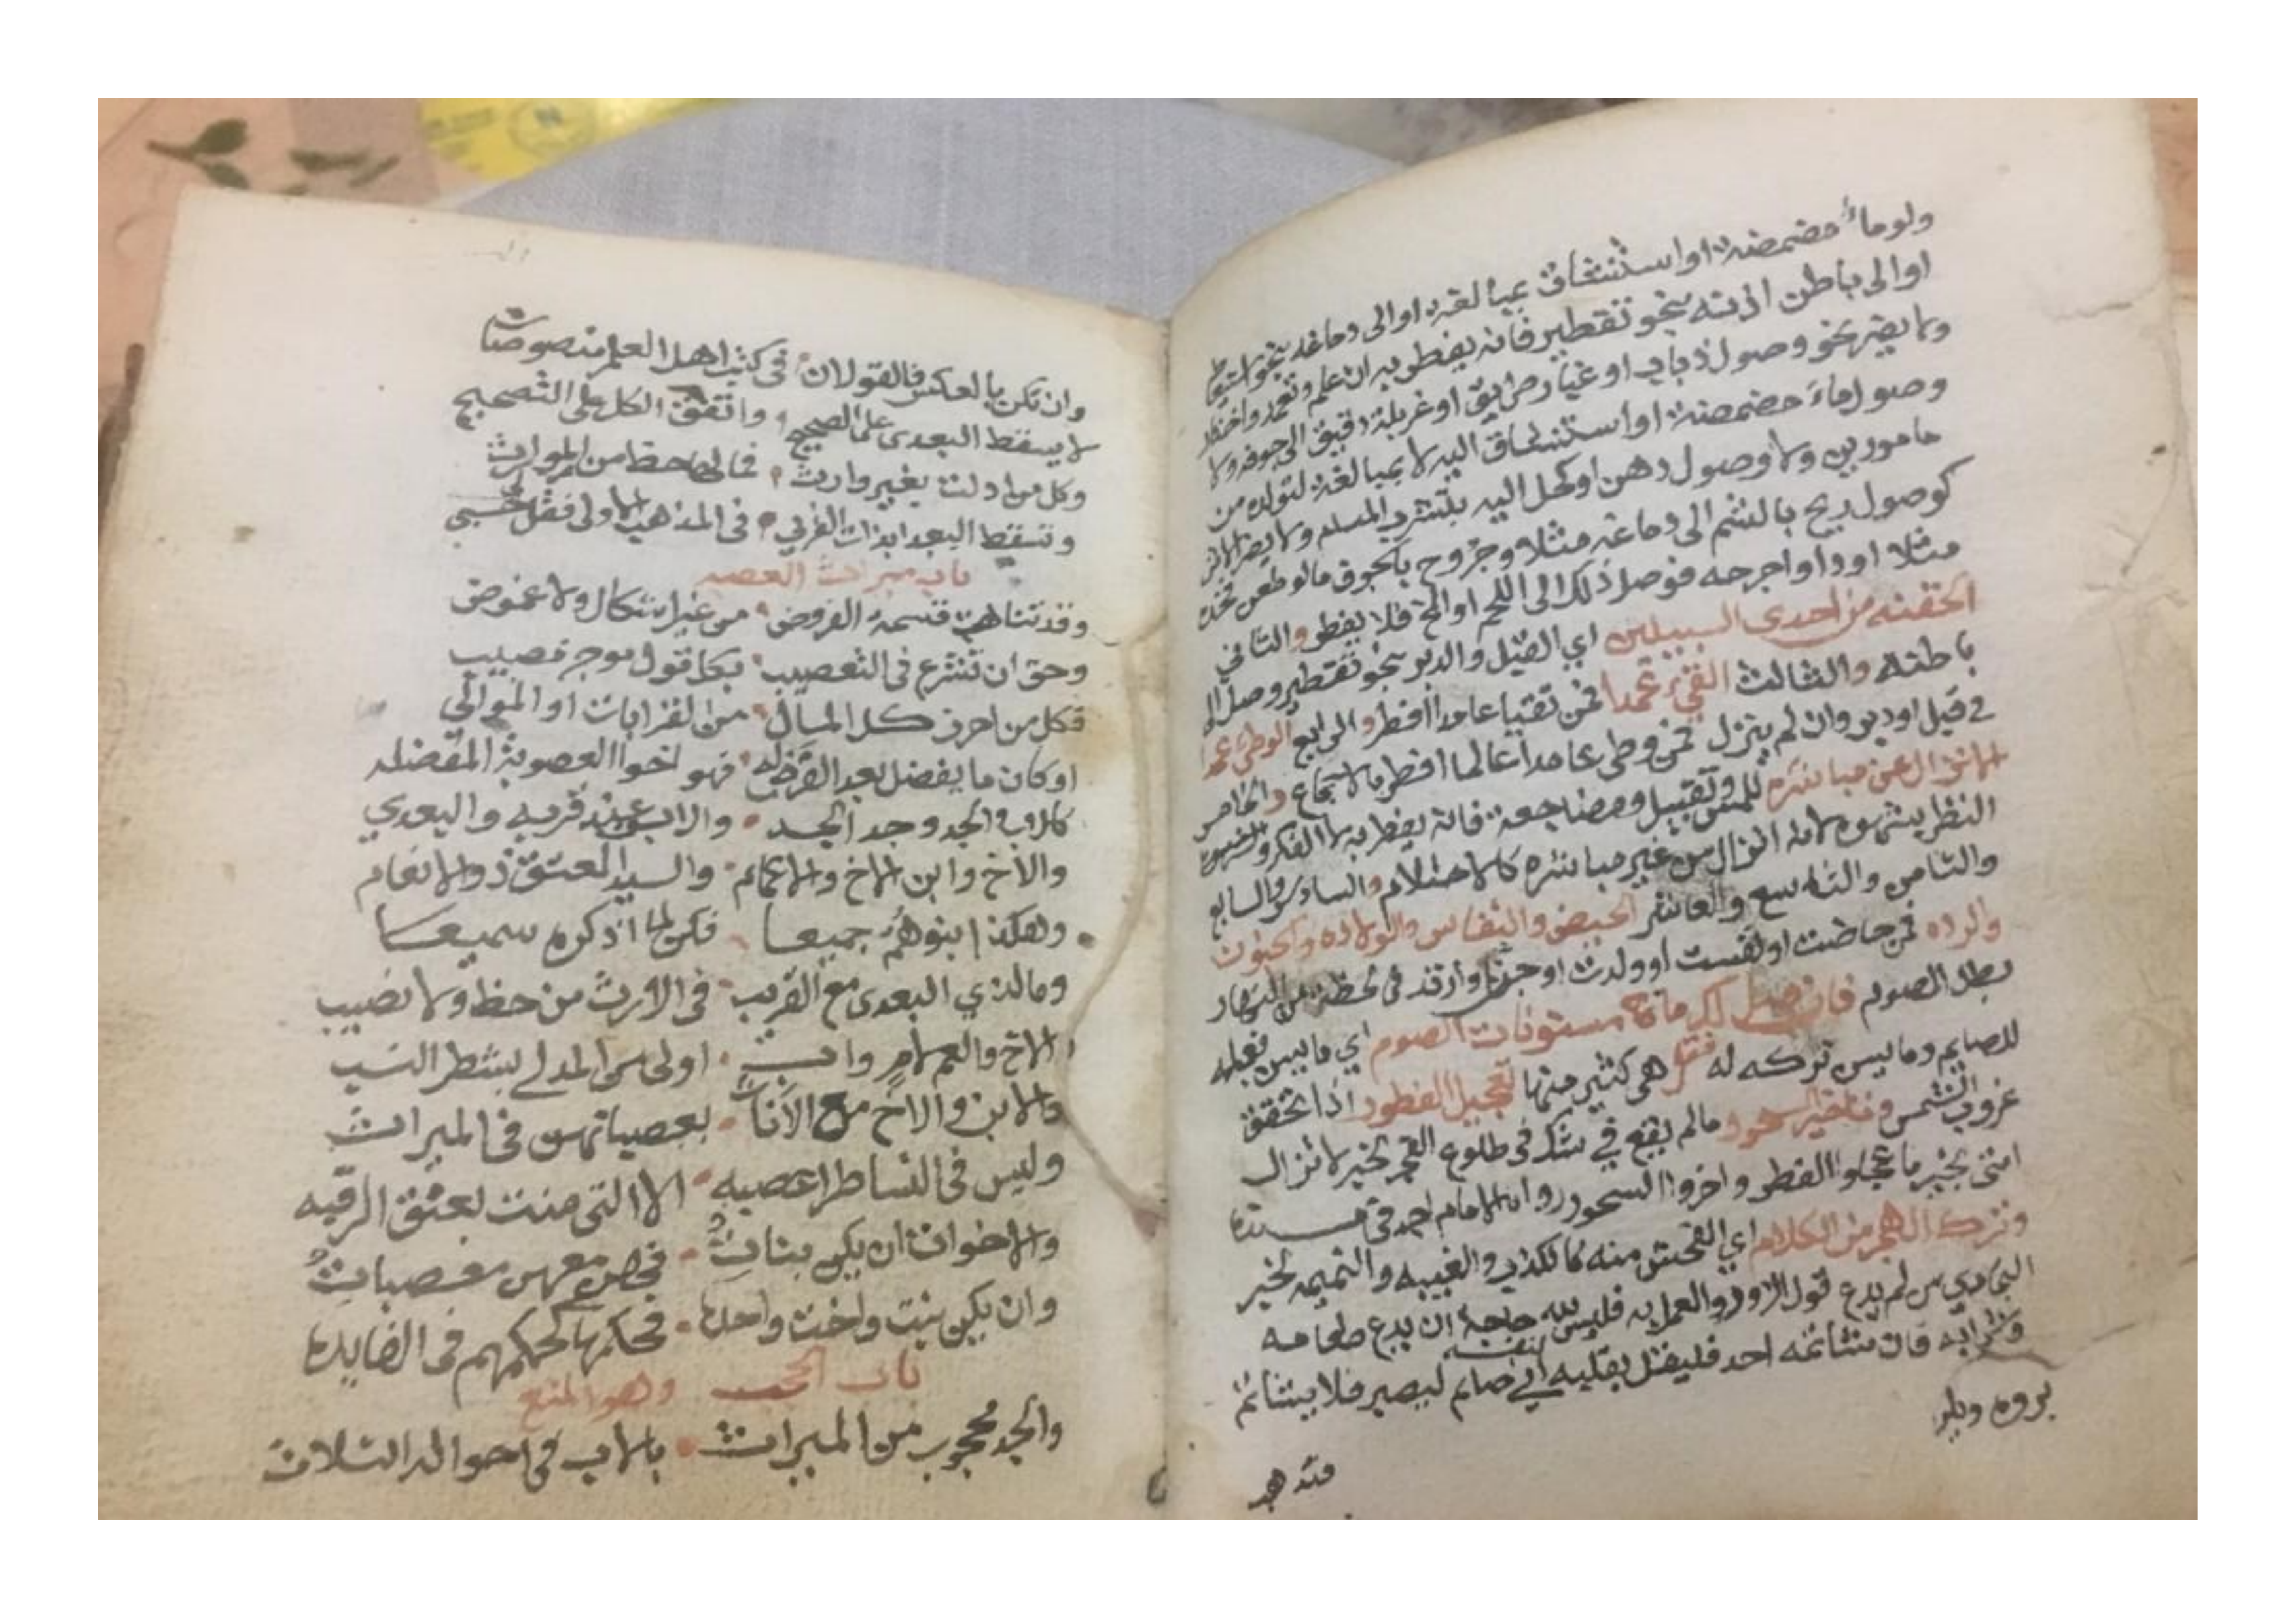 ولو ماء مضمضة او استنشاق بمبالغة او الى دماغه بنحو استعاط
او الى باطن اذنه بنحو تقطير فانه يفطر به ان علم وتعمد واختار
ولا يضر نحو وصول ذباب او غبار طريق او غربلة دقيق الى جوفه ولا
وصول ماء مضمضة او استنشاق اليه لا بمبالغة لتولده من
مامور بهن ولا وصول دهن او كحل اليه بتشرب المسام ولا يضر
كوصول ريح بالشم الى دماغه مثلا وجزوح بالجوف مالو طعن فخذه
مثلا او داوا جرحه فوصل ذلك الى اللحم او المخ فلا يفطر والثاني
الحقنه من احدى السبيلين اي القبل والدبر بنحو تقطير وصل الى
باطنه والثالث القيء عمدا فمن تقيا عامدا افطر والرابع الوطئ عمدا
في قبل او دبر وان لم ينزل فمن وطى عامدا عالما افطر بالاجماع والخامس
الانزال عن مباشره للمس وتقبيل ومضاجعة فانه يفطر به لا الفكر و
النظر بشهوه لانه انزال من غير مباشره كالاحتلام والسادس والسابع
والثامن والتاسع والعاشر الحيض والنفاس والولاده والجنون
والرده فمن حاضت او نفست او ولدت او جن او ارتد في لحظة من النهار
بطل الصوم فان قيل لكم ما مسنونات الصوم اي ما يسن فعله
للصايم وما يسن تركه له فقل هي كثير منها تعجيل الفطور اذا تحقق
غروب الشمس وتاخير السحور مالم يقع في شك في طلوع الفجر لخبر لا تزال
امتى بخير ما عجلوا الفطر واخروا السحور رواه الامام احمد في مسنده
وترك الهجر من الكلام اي الفحش منه كالكذب والغيبه والنميمه لخبر
البخاري من لم يدع قول الزور والعمل به فليس لله حاجة ان يدع طعامه
وشرابه فان شاتمه احد فليقل بقلبه لنفسه اني صايم ليصبر فلا يشاتم
وان تكن بالعكس فالقولان في كتب اهل العلم منصوصان
لا يسقط البعدى على الصحيح واتفق الكل على التصحيح
وكل من ادلت بغير وارث فمالها حظ من الموارث
وتسقط البعدا بذات القرب في المذهب الاولى فقل لي حسبي
باب ميراث العصبه
وقد تناهت قسمة الفروض من غير اشكال ولا غموض
وحق ان نشرع في التعصيب بكل قول موجز مصيب
فكل من احرز كل المال من القرابات او الموالي
او كان ما يفضل بعد الفرض له فهو اخوا العصوبة المفضله
كالاب والجد وجد الجد والابن عند قربه والبعدي
والاخ وابن الاخ والاعمام والسيد المعتق ذو الانعام
وهكذا بنوهم جميعا فكن لما اذكره سميعا
وما لذي البعدى مع القريب في الارث من حظ ولا نصيب
والاخ والعم لام واب اولى من المدلي بشطر النسب
والابن والاخ مع الاناث يعصبانهن في الميراث
وليس في النسا طرا عصبه الا التي منت بعتق الرقبه
والاخوات ان يكن بنات فهن معهن معصبات
وان يكن بنت واخت واحده فحكمها كحكمهم في الفايده
باب الحجب وهو المنع
والجد محجوب من الميراث بالاب في احواله الثلاث